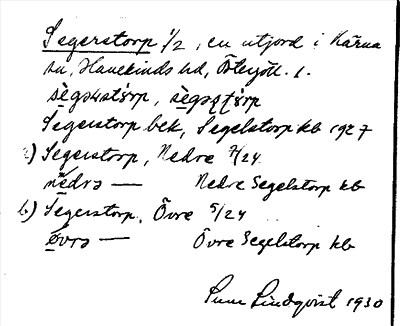 Segerstorp 1/2, en utjord i Kärna
sn, Hanekinds hd, Östergötl. l.
sègərstórp, sègəstórp
Segerstorp bek, Segelstorp kb 1927
a) Segerstorp, Nedre 7/24
nèdrə — Nedre Segelstorp kb
b) Segerstorp, Övre 5/24
òvrə — Övre Segelstorp kb
Sune Lindqvist 1930